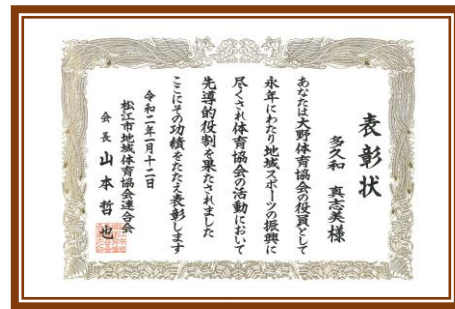 表彰状
多久和 真志美様
あなたは大野体育協会の役員として
永年にわたり地域スポーツの振興に
尽くされ体育協会の活動において
先導的役割を果たされました
ここにその功績をたたえ表彰します
令和二年一月十二日
松江市地域体育協会連合会
会長 山本哲也